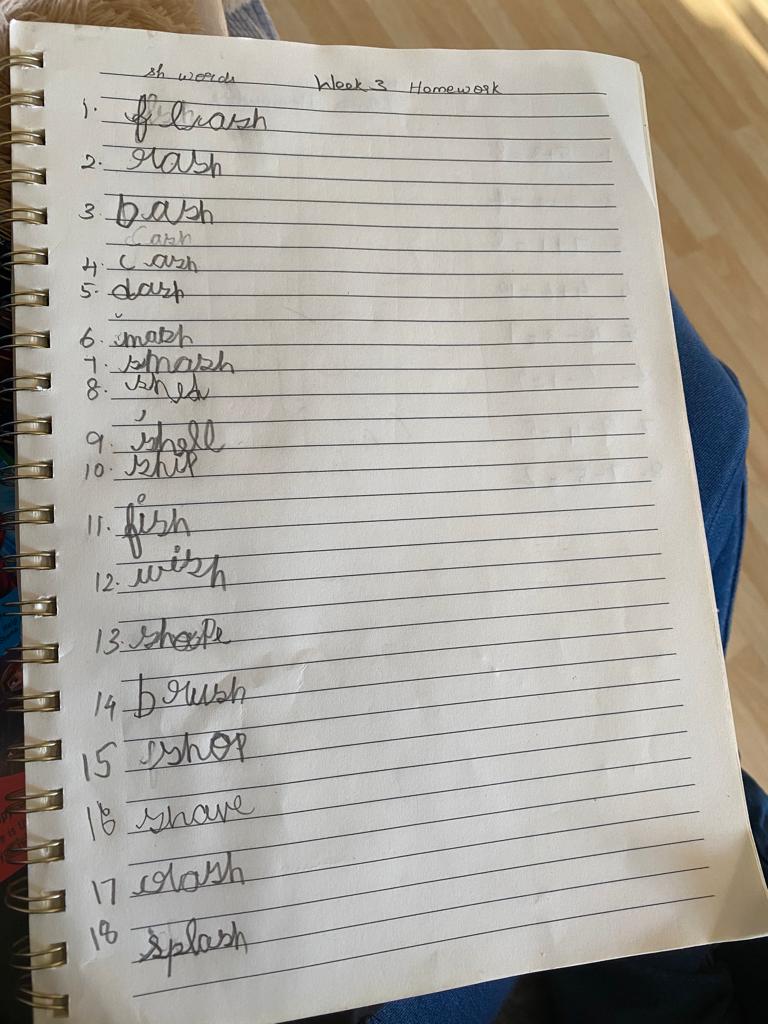 sh words Week 3 Homework
1. flash
2. rash
3. bash
Cash
4. Cash
5. dash
6. mash
7. smash
8. shed
9. shell
10. ship
11. fish
12. wish
13. shape
14 brush
15 shop
16 shave
17 crash
18 splash